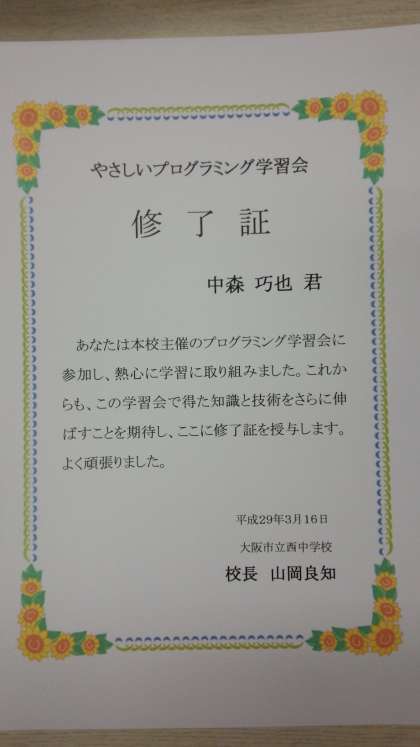 やさしいプログラミング学習会
修了証
中森 巧也 君
あなたは本校主催のプログラミング学習会に
参加し、熱心に学習に取り組みました。これか
らも、この学習会で得た知識と技術をさらに伸
ばすことを期待し、ここに修了証を授与します。
よく頑張りました。
平成29年3月16日
大阪市立西中学校
校長 山岡良知